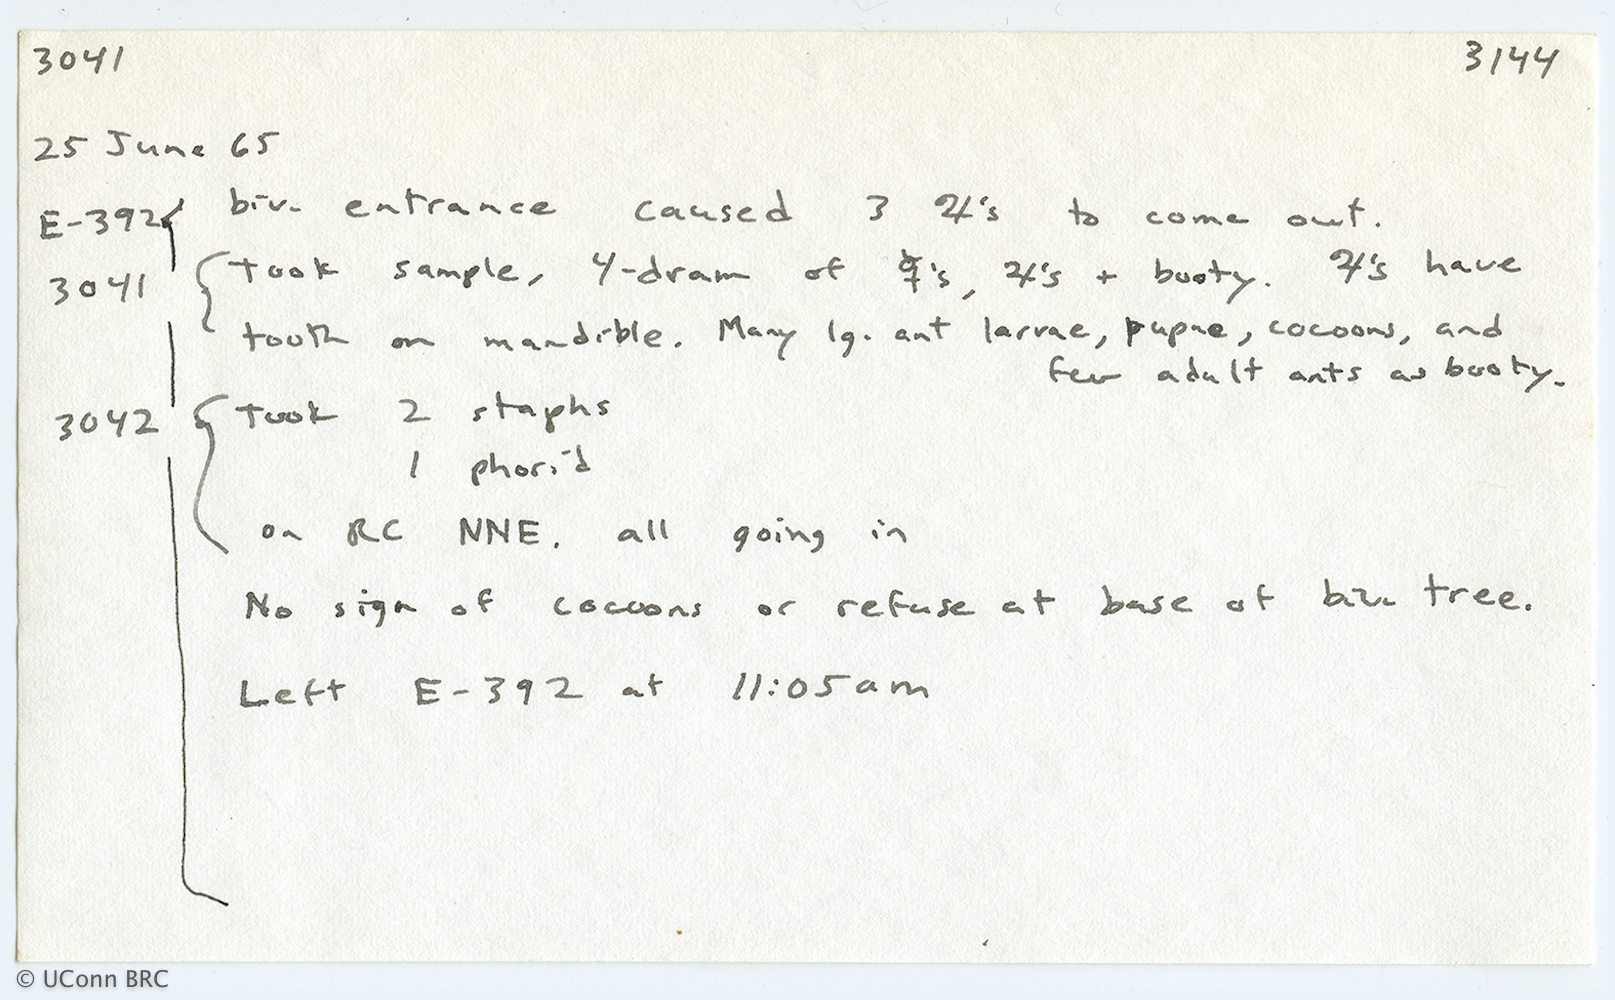 3041 3144
25 June 65
E-392 biv. entrance caused 3 ♃'s to come out.
3041 took sample, 4-dram of ☿'s, ♃'s + booty. ♃'s have
tooth on mandible. Many lg. ant larvae, pupae, cocoons, and
few adult ants as booty.
3042 Took 2 staphs
1 phorid
on RC NNE. all going in
No sign of cocoons or refuse at base of biv. tree.
Left E-392 at 11:05am
© UConn BRC